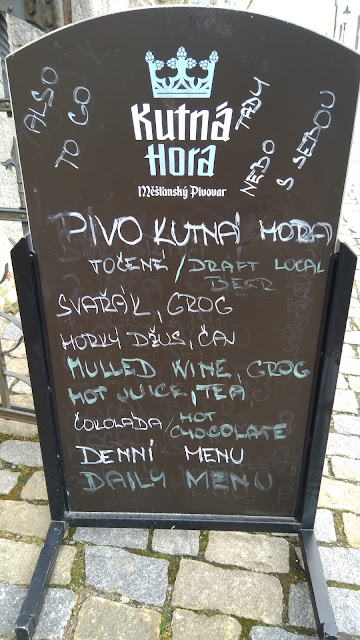 ALSO
TO GO
Kutná
Hora
Měšťanský Pivovar
TADY
NEDO
S SEBOU
PIVO KUTNÁ HORA
TOČENÉ / DRAFT LOCAL
BEER
SVAŘÁK, GROG
HORKÝ DŽUS, ČAJ
MULLED WINE, GROG
HOT JUICE, TEA
ČOKOLÁDA / HOT
CHOCOLATE
DENNÍ MENU
DAILY MENU